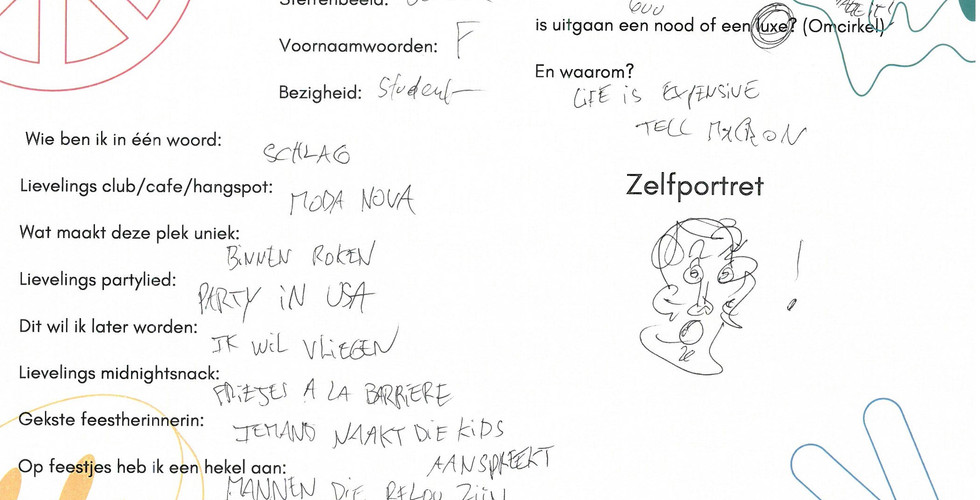 Sterrenbeeld:
Voornaamwoorden: F
Bezigheid: Student
Wie ben ik in één woord: SCHLAG
Lievelings club/cafe/hangspot: MODA NOVA
Wat maakt deze plek uniek: BINNEN ROKEN
Lievelings partylied: PARTY IN USA
Dit wil ik later worden: IK WIL VLIEGEN
Lievelings midnightsnack: FRIETJES A LA BARRIERE
Gekste feestherinnerin: IEMAND NAAKT DIE KIDS AANSPREEKT
Op feestjes heb ik een hekel aan: MANNEN DIE RELOU ZIJN
is uitgaan een nood of een luxe? (Omcirkel)
En waarom?
LIFE IS EXPENSIVE
TELL MACRON
Zelfportret
!